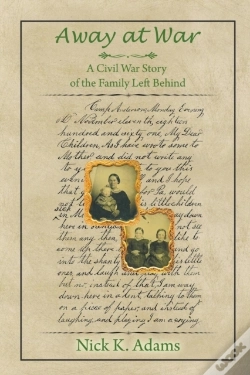 Away at War
A Civil War Story
of the Family Left Behind
Camp Anderson Monday Evening
November eleventh, eighteen
hundred and sixty one, My Dear
Children, As I have wrote some to
Mother and did not write any
to
went and I hope
that for Pa, would
not little children
in down
here in not see
them any, then like to
come up there
into the
ones and laugh with them
but no, instead of that I am way
down here in a tent, talking to them
on a piece of paper, and instead of
laughing and playing I am a crying.
Nick K. Adams
wook